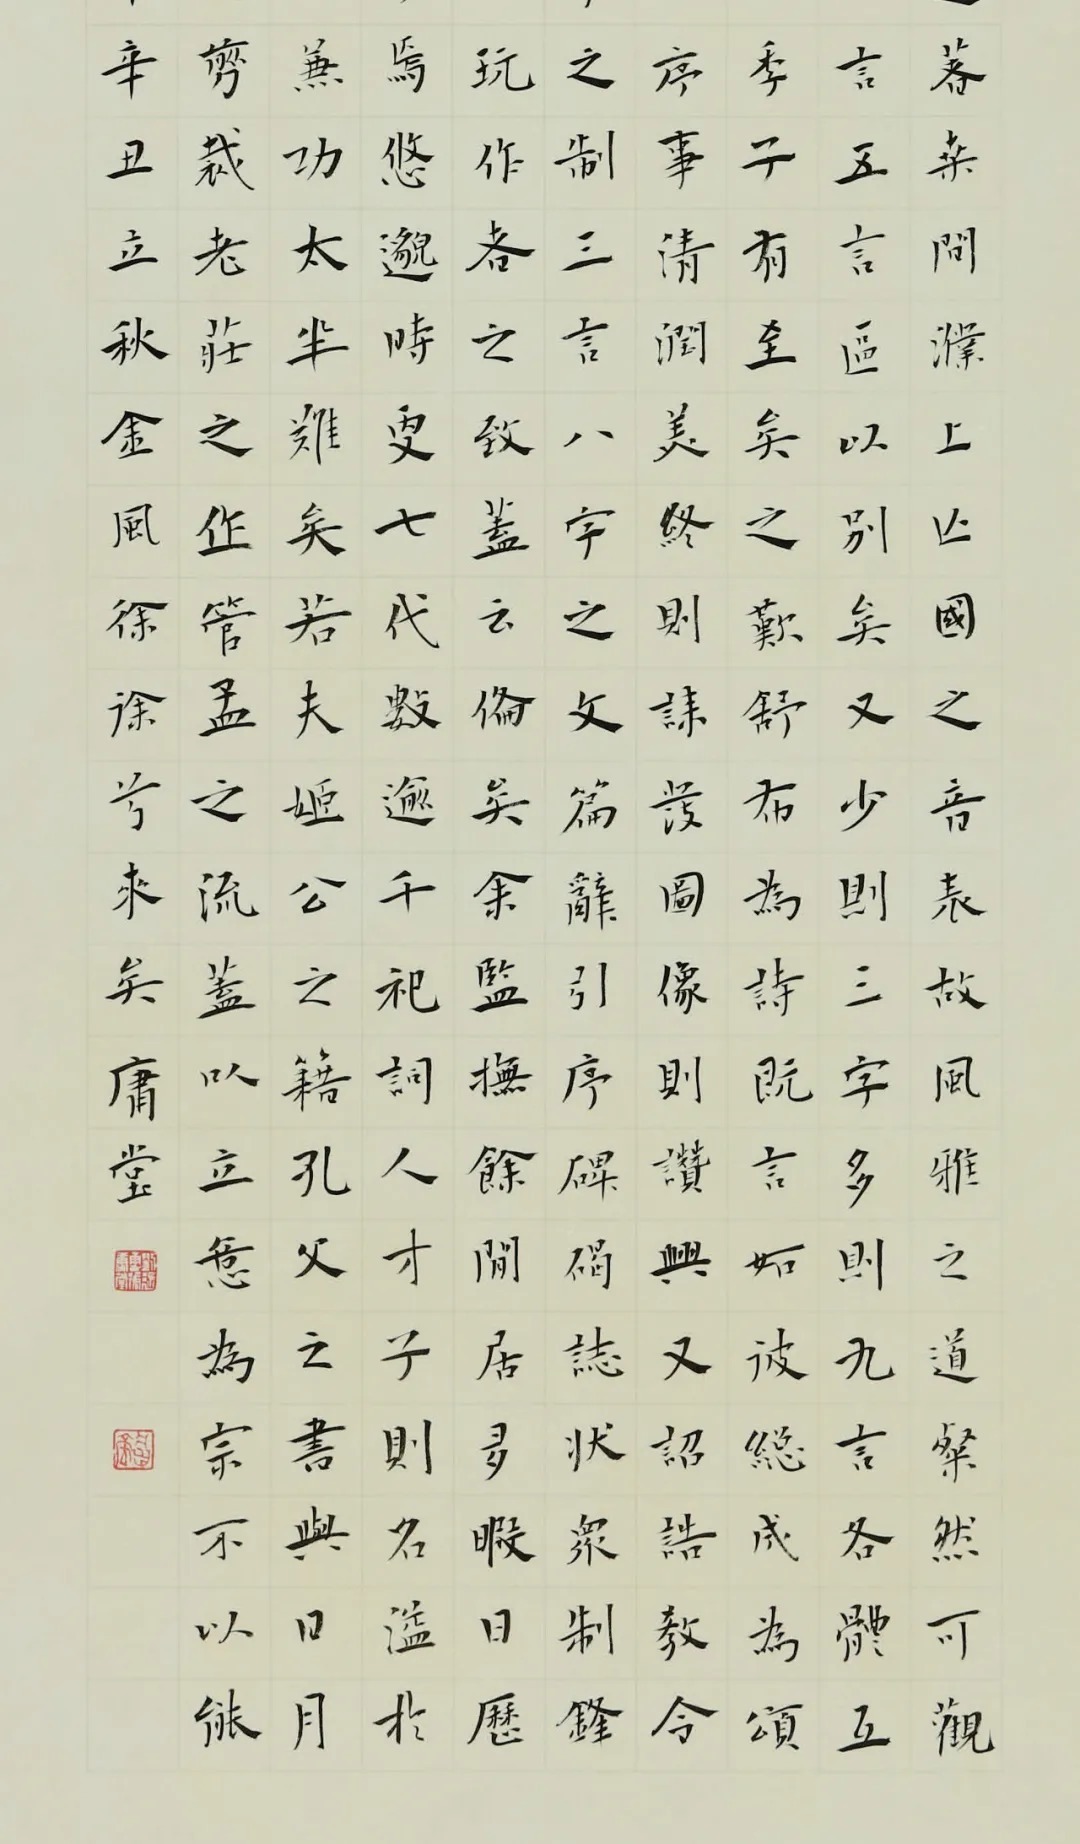 著桒間濮上亡國之音表故風雅之道粲然可觀
言五言區以別矣又少則三字多則九言各體互
季子有至矣之歎舒布為詩既言如彼総成為頌
序事清潤美終則誄發圖像則讚興又詔誥教令
之制三言八字之文篇辭引序碑碣誌狀衆制鋒
玩作者之致蓋云備矣余監撫餘閒居多暇日歷
焉悠邈時更七代數逾千祀詞人才子則名溢於
兼功太半難矣若夫姬公之籍孔父之書與日月
剪裁老莊之作管孟之流蓋以立意為宗不以能
辛丑立秋金風徐徐兮來矣庸堂